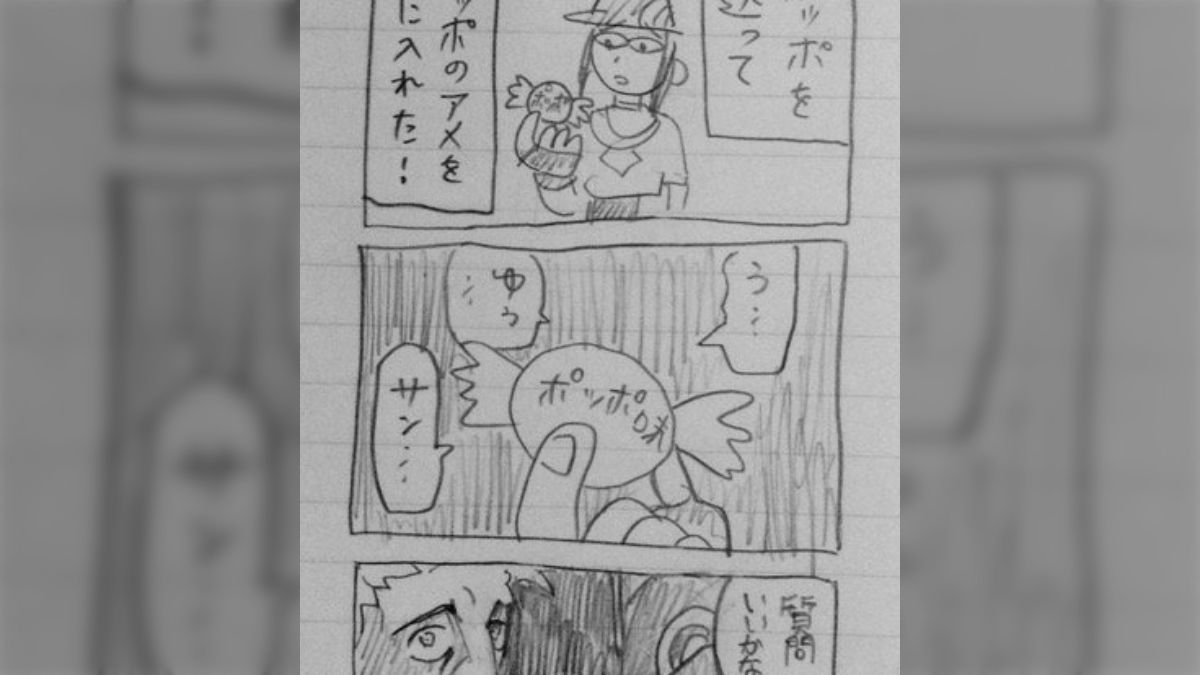 ッポを
送って
ッポのアメを
に入れた！
う…
ポッポ味
ゆぅ
…
サン…
質問
いいかな